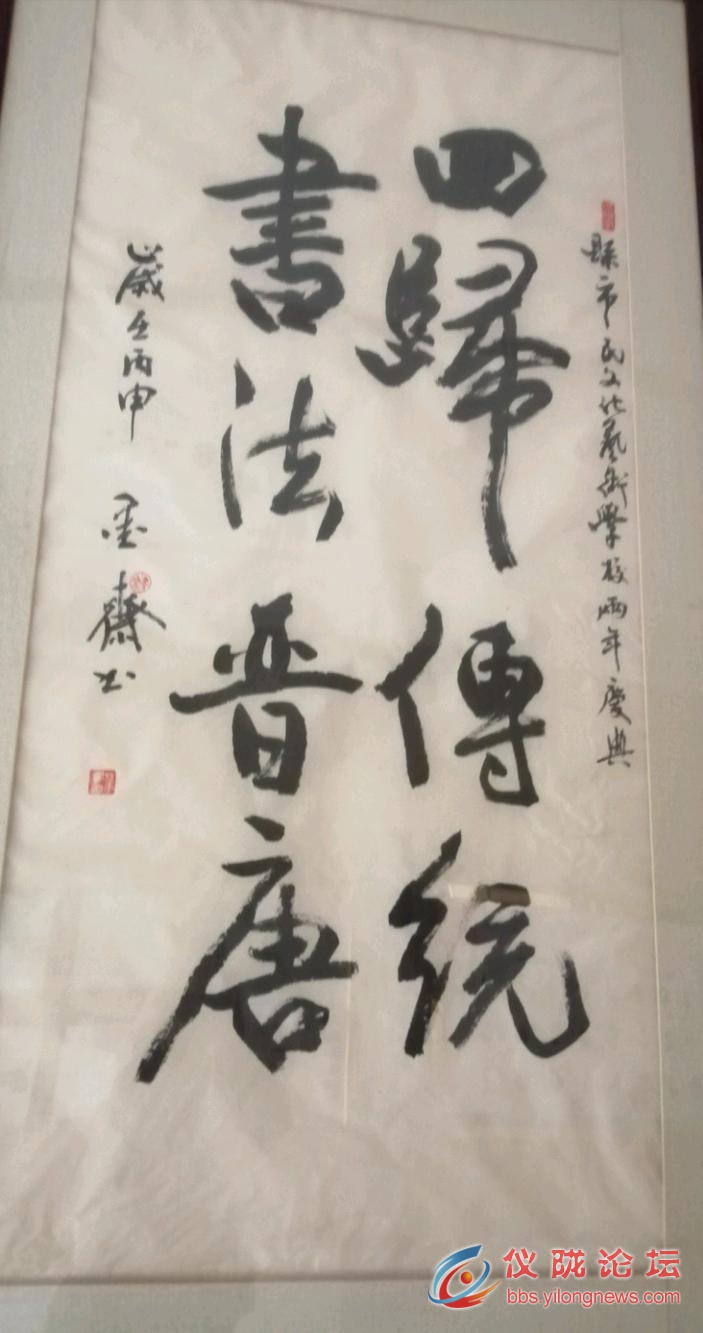 縣市民文化藝術學校兩年慶典
回歸傳統
書法晋唐
歲在丙申 墨齋书
仪陇论坛
bbs.yilongnews.com